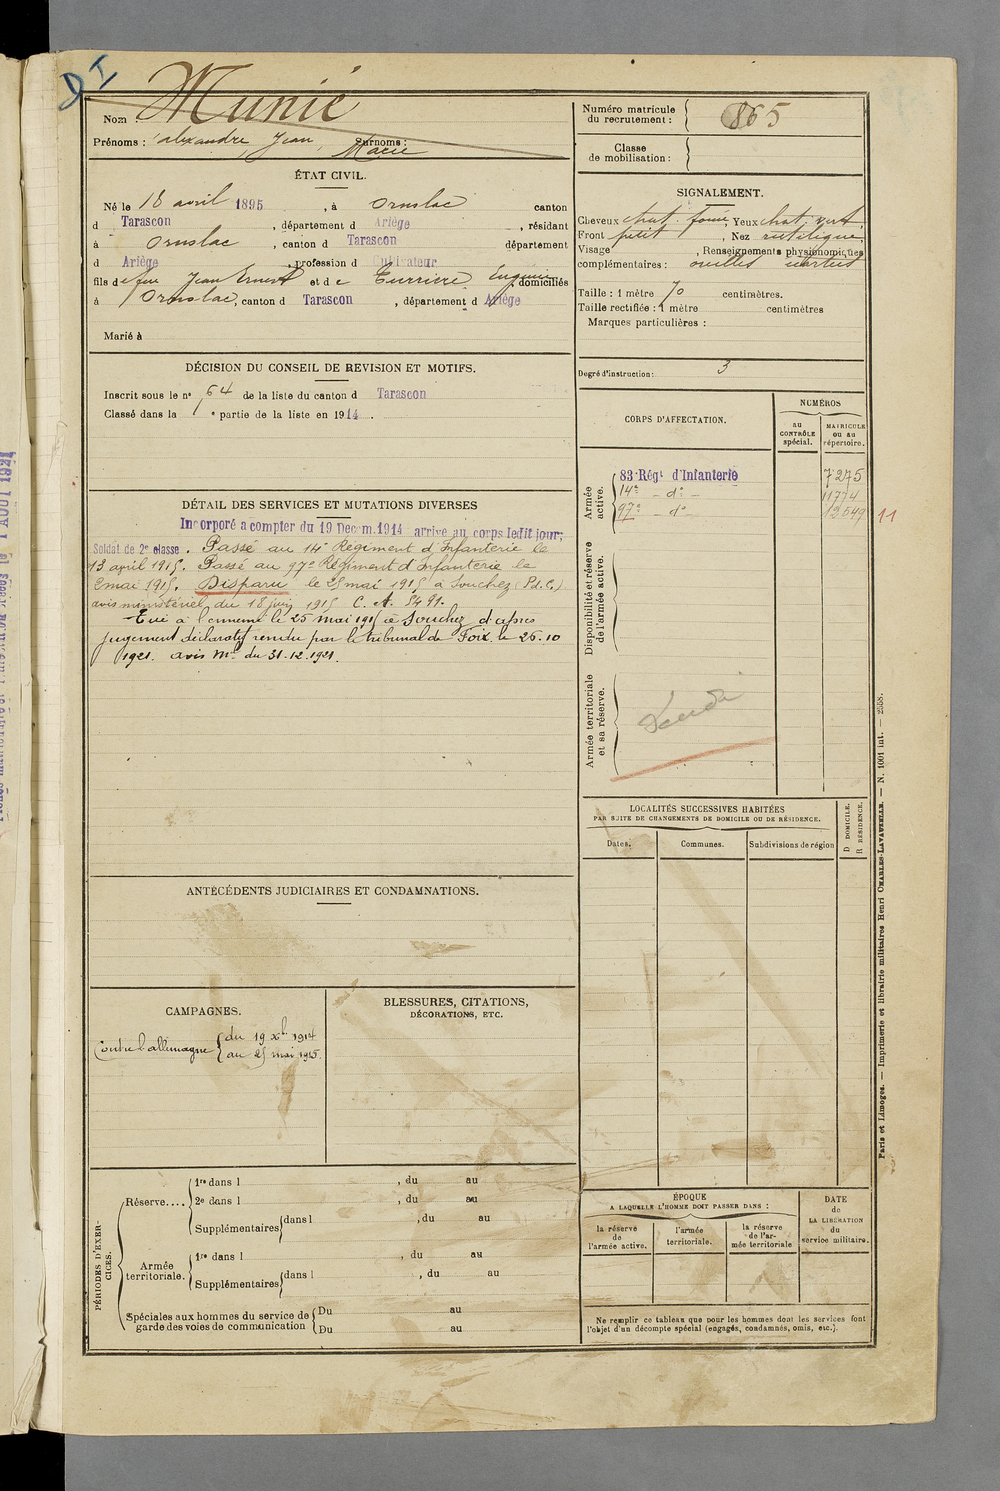 D I
Nom Munié
Prénoms : Alexandre, Jean, Marie Surnoms :
ÉTAT CIVIL.
Né le 18 avril 1895, à Ornolac canton
d Tarascon, département d Ariège, résidant
à Ornolac, canton d Tarascon département
d Ariège, profession d Cultivateur
fils de feu Jean Ernest et de Eugénie, domiciliés
à Ornolac, canton d Tarascon, département d Ariège
Marié à
DÉCISION DU CONSEIL DE REVISION ET MOTIFS.
Inscrit sous le n° 64 de la liste du canton d Tarascon
Classé dans la 1e partie de la liste en 1914.
DÉTAIL DES SERVICES ET MUTATIONS DIVERSES
Incorporé a compter du 19 Decem. 1914 arrivé au corps ledit jour;
Soldat de 2e classe. Passé au 14e Régiment d'Infanterie le
13 avril 1915. Passé au 97e Régiment d'Infanterie le
2 mai 1915. Disparu le 25 mai 1915 à Souchez (P.d.C.)
avis ministériel du 18 juin 1915 C. A. 5491.
Tué à l'ennemi le 25 mai 1915 à Souchez d'après
jugement déclaratif rendu par le tribunal de Foix le 26.10
1921. avis Mel du 31.12.1921.
ANTÉCÉDENTS JUDICIAIRES ET CONDAMNATIONS.
CAMPAGNES.
Contre l'allemagne { du 19 Xbre 1914
au 25 mai 1915.
BLESSURES, CITATIONS,
DÉCORATIONS, ETC.
PÉRIODES D'EXER-
CICES.
Réserve....
1re dans l , du au
2e dans l , du au
Supplémentaires { dans l , du au
Armée
territoriale.
1re dans l , du au
Supplémentaires { dans l , du au
Spéciales aux hommes du service de
garde des voies de communication
Du au
Du au
Numéro matricule
du recrutement : 865
Classe
de mobilisation :
SIGNALEMENT.
Cheveux chat. foncé, Yeux chat. vert
Front petit, Nez rectiligne
Visage , Renseignements physionomiques
complémentaires : oreilles écartées
Taille : 1 mètre 70 centimètres.
Taille rectifiée : 1 mètre centimètres
Marques particulières :
Degré d'instruction : 3
CORPS D'AFFECTATION.
NUMÉROS
AU
CONTRÔLE
spécial.
MATRICULE
OU AU
répertoire.
Armée
active.
83 Régt d'Infanterie 7275
14e - do - 11774
97e - do - 12549 11
Disponibilité et réserve
de l'armée active.
Armée territoriale
et sa réserve.
LOCALITÉS SUCCESSIVES HABITÉES
PAR SUITE DE CHANGEMENTS DE DOMICILE OU DE RÉSIDENCE.
Dates.
Communes.
Subdivisions de région
D DOMICILE.
R RÉSIDENCE.
ÉPOQUE
A LAQUELLE L'HOMME DOIT PASSER DANS :
la réserve
de
l'armée active.
l'armée
territoriale.
la réserve
de l'ar-
mée territoriale
DATE
de
LA LIBÉRATION
du
service militaire.
Ne remplir ce tableau que pour les hommes dont les services font
l'objet d'un décompte spécial (engagés, condamnés, omis, etc.).
Paris et Limoges. — Imprimerie et librairie militaires Henri CHARLES-LAVAUZELLE. — N. 1001 int. — 2558.